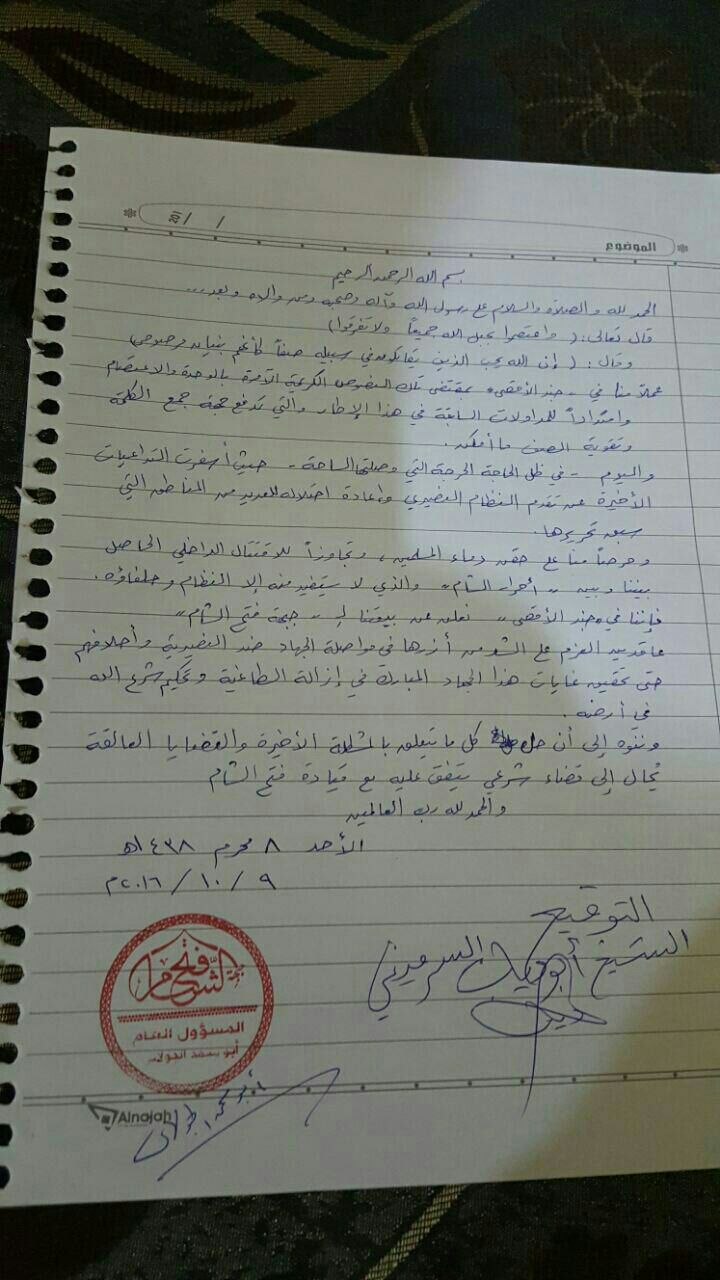 الموضوع
/ / 201
بسم الله الرحمن الرحيم
الحمد لله والصلاة والسلام على رسول الله وآله وصحبه ومن والاه وبعد...
قال تعالى: ( واعتصموا بحبل الله جميعاً ولا تفرقوا)
وقال: ( إن الله يحب الذين يقاتلون في سبيله صفاً كأنهم بنيان مرصوص)
عملاً منا في "جند الأقصى" بمقتضى تلك النصوص الكريمة الآمرة بالوحدة والاعتصام
وامتداداً للمحاولات السابقة في هذا الإطار والتي تدفع جمع الكلمة
وتقوية الصف ما أمكن.
واليوم - في ظل الحاجة الحرجة التي وصلتها الساحة - حيث أسفرت التداعيات
الأخيرة عن تقدم النظام النصيري وإعادة احتلاله للعديد من المناطق التي
سبق تحريرها.
وحرصاً منا على حقن دماء المسلمين، وتجاوزاً للاقتتال الداخلي الحاصل
بيننا وبين "أحرار الشام" والذي لا يستفيد منه إلا النظام وحلفاؤه.
فإننا في "جند الأقصى" نعلن عن بيعتنا لـ "جبهة فتح الشام"
عاقدين العزم على الشد من أزرها في مواصلة الجهاد ضد النصيرية وأحلافهم
حتى تحقيق غايات هذا الجهاد المبارك في إزالة الطاغية وتحكيم شرع الله
في أرضه.
وننوه إلى أن حل كل ما يتعلق بالمشكلة الأخيرة والقضايا العالقة
يُحال إلى قضاء شرعي يتفق عليه مع قيادة فتح الشام
والحمد لله رب العالمين
الأحد ٨ محرم ١٤٣٨هـ
٩ / ١٠ / ٢٠١٦م
التوقيع
الشيخ أبو دياب السرميني
جبهة فتح الشام
المسؤول العام
أبو محمد الجولاني
Alnajah
أبو محمد الجولاني